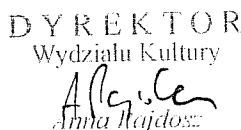 DYREKTOR
Wydziału Kultury
Anna Rajdosz